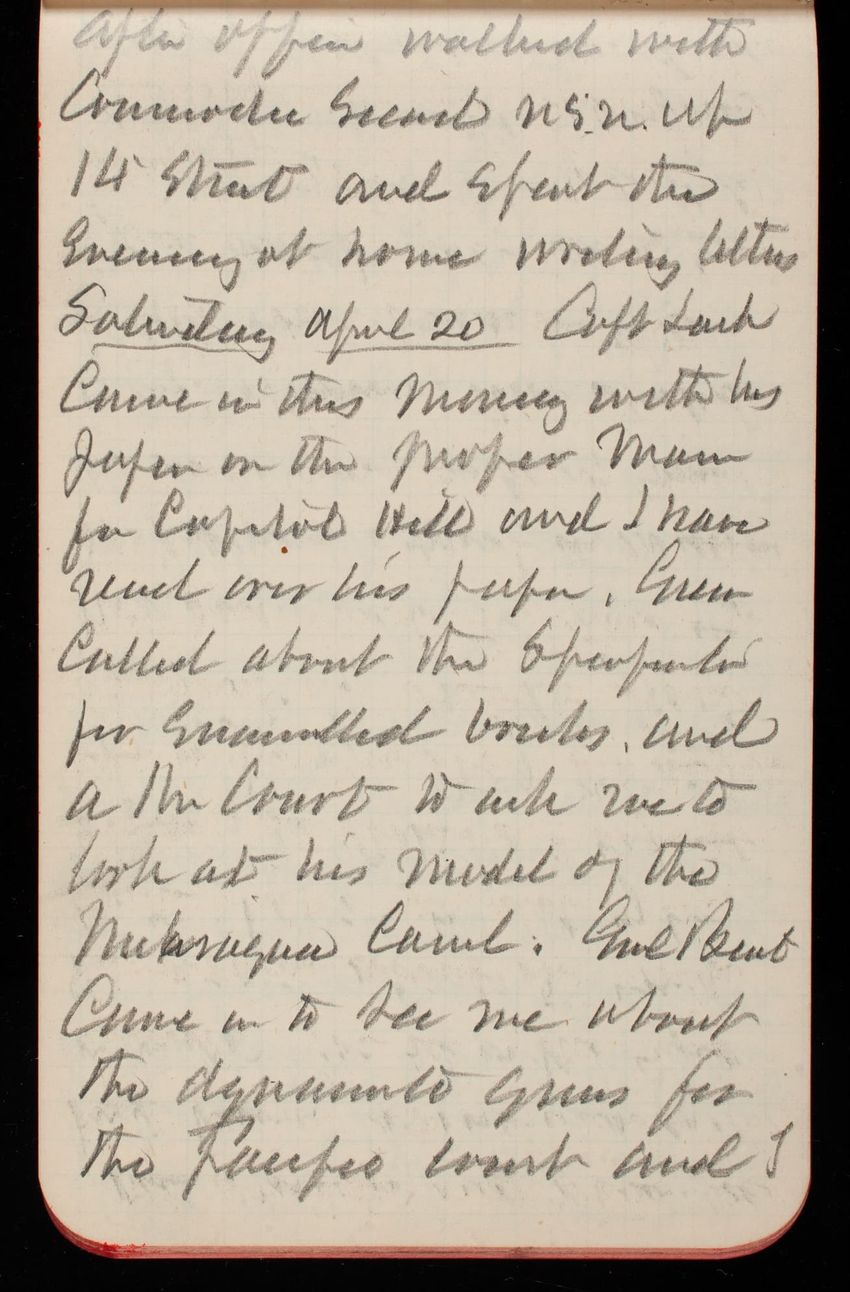 After office walked with
Commodore U.S.N. up
14 Street and spent the
Evening at home writing letters
Saturday April 20 Capt
Came in this Morning with his
paper on the proper Main
for Capitol Hill and I have
read over his paper.
Called about the
for Enamelled bricks, and
a Mr Court to ask me to
look at his Model of the
Nicaragua Canal. Genl Benet
Came in to see me about
the dynamite guns for
the Pacific coast and I